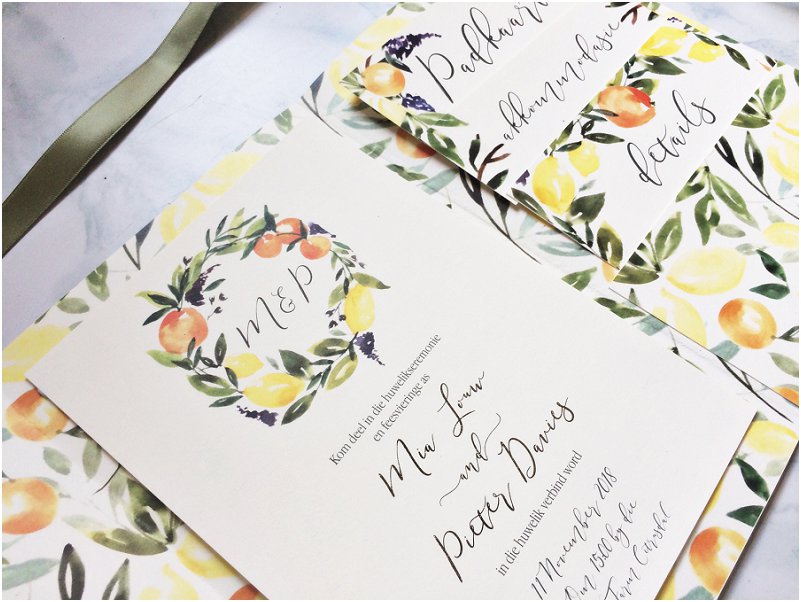 Padkaart
akkommodasie
details
M & P
Kom deel in die huweliksseremonie
en feesvieringe as
Mia Louw
and
Pieter Davies
in die huwelik verbind word
11 November 2018
Om 15:00 by die
Farm